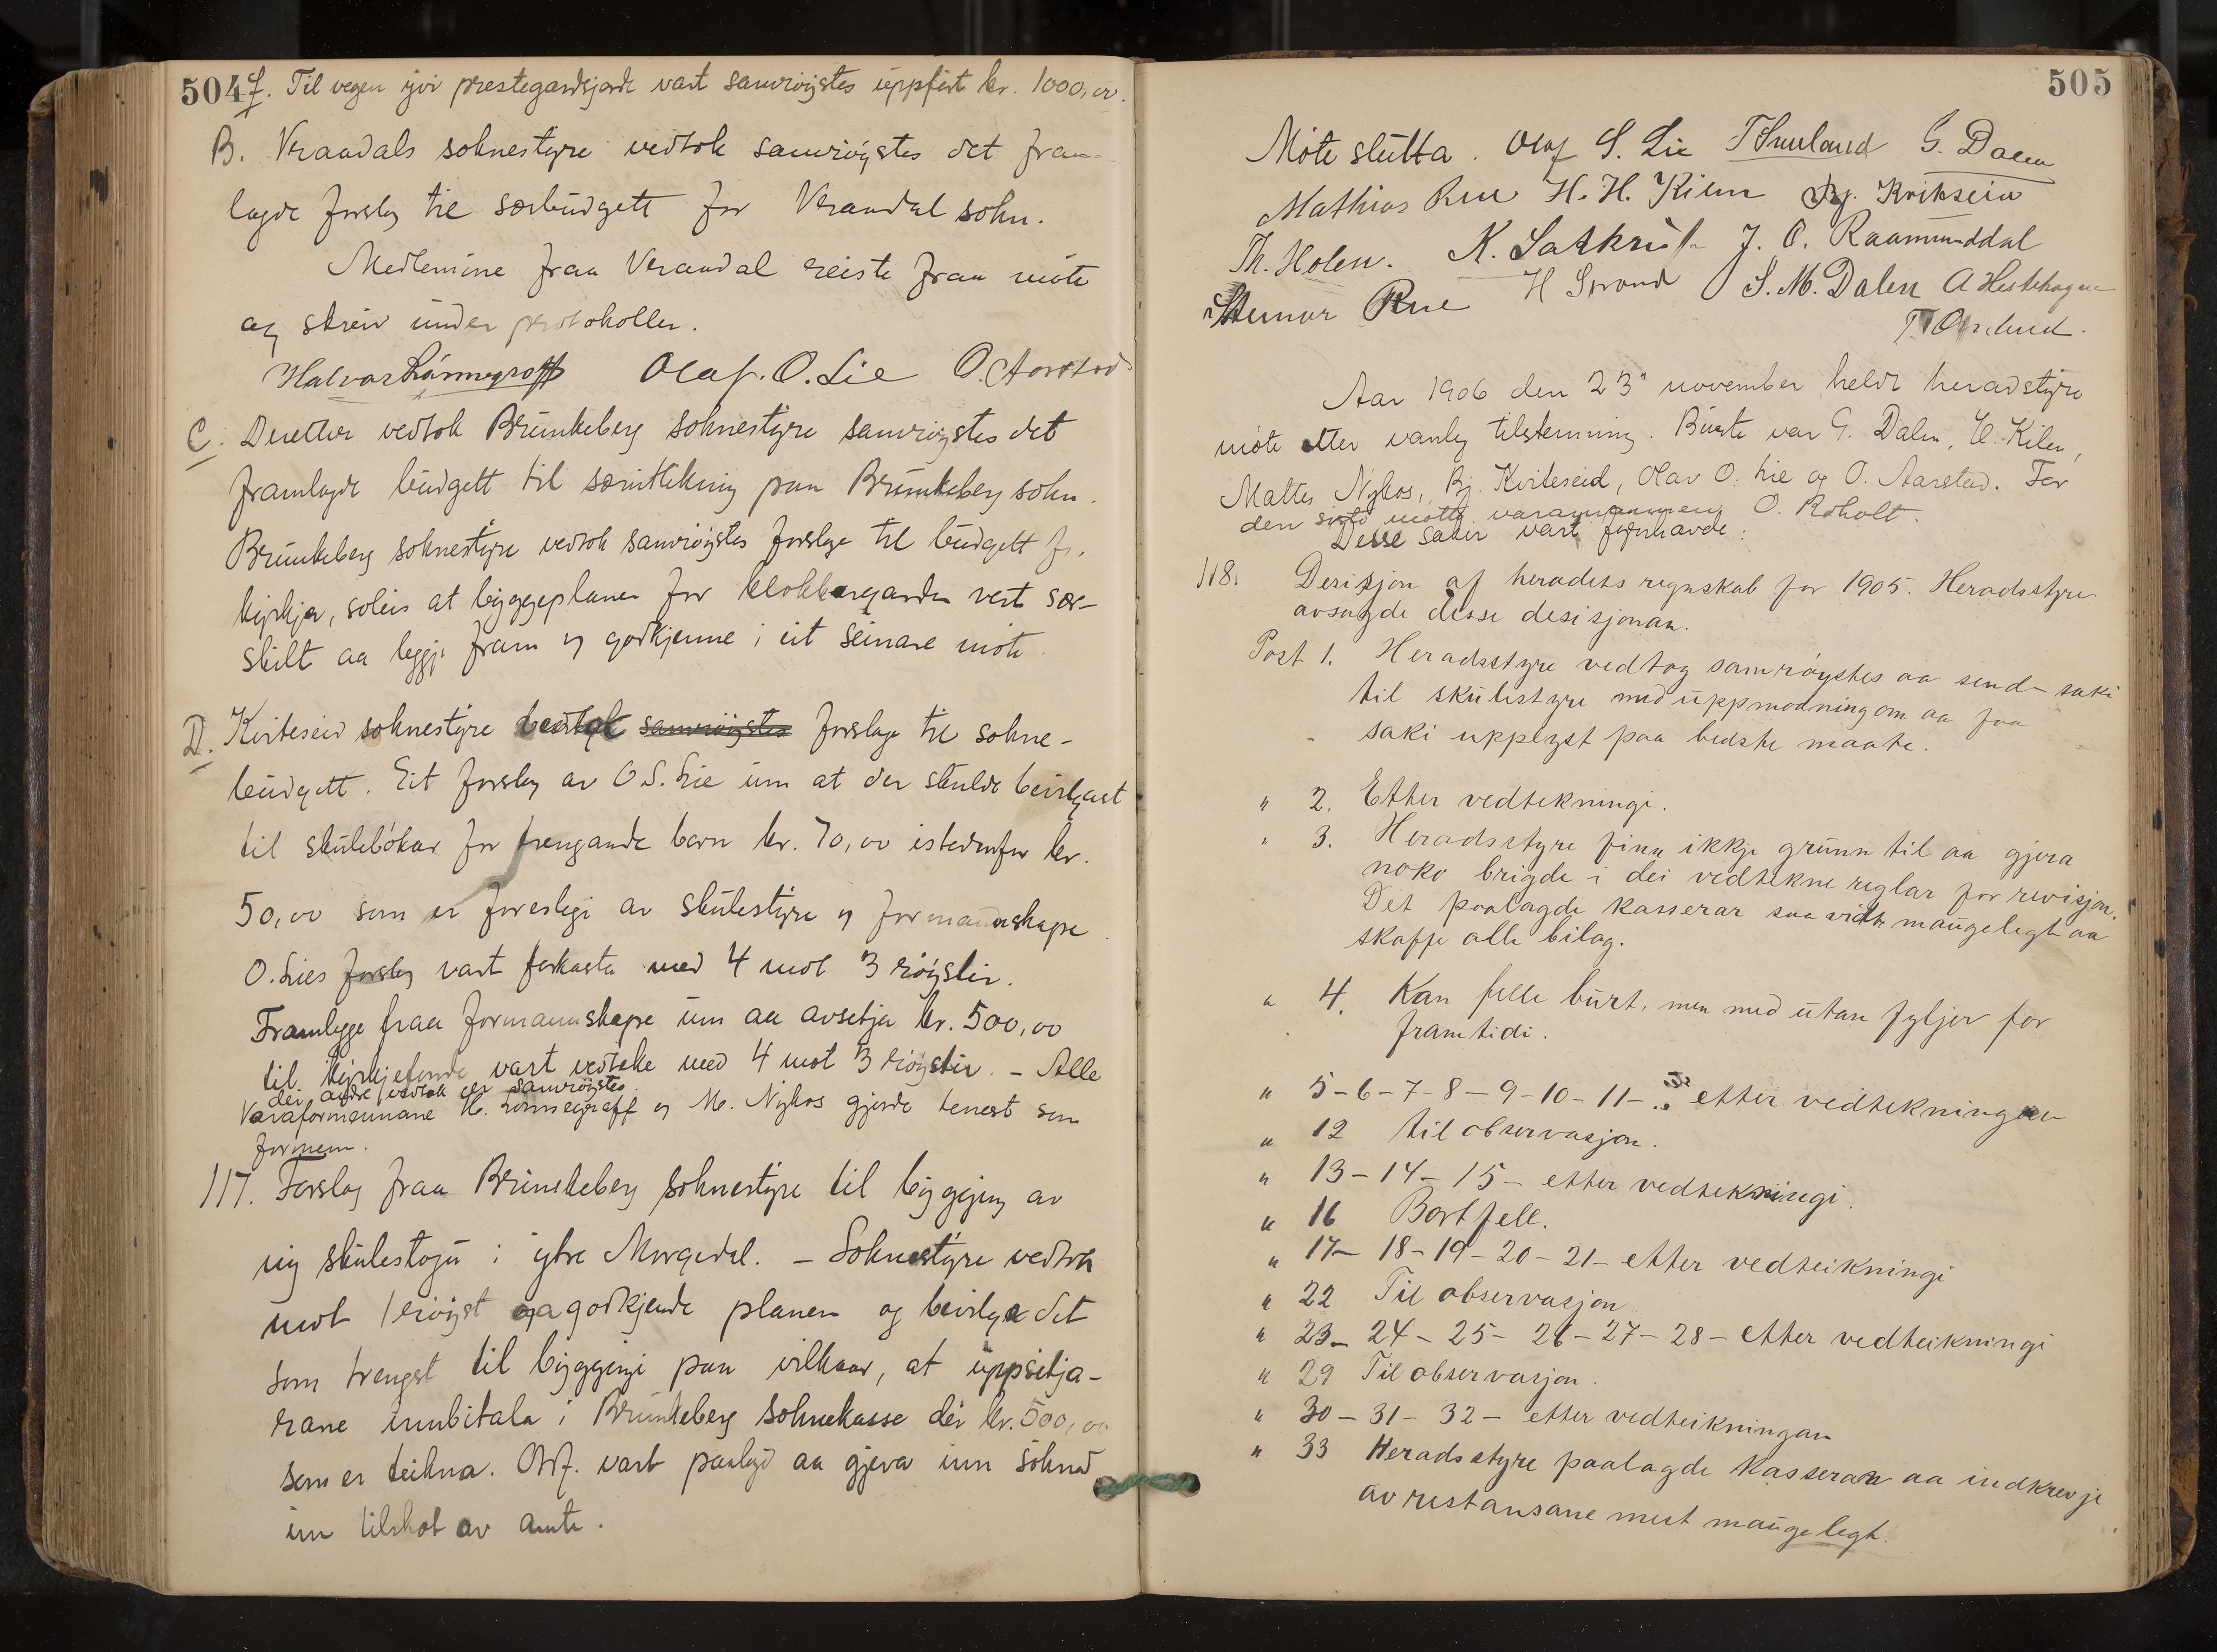 504
f. Til vegen yvi prestegardsjorde vart samröystes uppfört kr. 1000,00.
B. Vraadals soknestyre vedtok samröystes det fram-
lagde forslag til særbudgett for Vraadal sokn.
Medlemine fraa Vraadal reiste fraa möte
og skreiv under protokollen.
Halvor Lönnegraff Olaf. O. Lie O. Aarstad
C. Deretter vedtok Brunkeberg soknestyre samröystes det
framlagde budgett til særutlikning paa Brunkeberg sokn.
Brunkeberg soknestyre vedtok samröystes forslage til budgett for
kyrkja, soleis at byggeplanen for klokkargarden vert sær-
skilt aa leggje fram og godkjenne i eit seinare möte.
D. Kviteseid soknestyre vedtok samröystes forslage til sokne-
budgett. Eit forslag av O.S. Lie um at der skulde beivlgast
til skulebökar for trengande born kr. 70,00 istedenfor kr.
50,00 som er foreslegi av skulestyre og formannskape.
O. Lies forslag vart forkasta med 4 mot 3 röyster.
Framlegge fraa formannskape um aa avsetja kr. 500,00
til kyrkjefonde vart vedteke med 4 mot 3 röyster. – Alle
dei andre vedtok er samröystes.
Varaformennane H. Lönnegraff og M. Nykos gjorde tenest som
formenn.
117. Forslag fraa Brunkeberg soknestyre til byggjing av
ny skulestogu i ytre Morgedal. – Soknestyre vedtok
mot 1 röyst aa godkjende planen og beivlga det
som trengst til byggjingi paa vilkaar, at uppsitja-
rane innbitala i Brunkeberg soknekasse dei kr. 500,00
som er teikna. Ordf. vart paalagd aa gjeva inn söknad
um tilskot av amte.
505
Möte slutta. Olaf S. Lie T Smuland G. Dalen
Mathias Rue H. H. Kilen Bj. Kvitseid
Th. Holen. K. Lastkrist J. O. Raamunddal
Steinar Rue H Strand S. M. Dalen A Hestehagen
T Omlund.
Aar 1906 den 23" november heldt heradstyre
möte etter vanleg tilstemning. Burte var G. Dalen, H. Kilen,
Mattis Nykos, Bj. Kviteseid, Olav O. Lie og O. Aarstad. For
den siste mötte varamannen O. Roholt.
Desse saker vart fyrehavde:
118. Desisjon af heradets regnskab for 1905. Heradsstyre
avsagde disse desisjonan.
Post 1. Heradsstyre vedtog samröystes aa senda saki
til skulestyre med uppmodning om aa faa
saki upplyst paa bedste maate.
" 2. Etter vedtekningi.
" 3. Heradsstyre finn ikkje grunn til aa gjera
noko brigde i dei vedtekne reglar for revisjon.
Det paalagde kasserar saa vidt maugelegt aa
skaffe alle bilag.
" 4. Kan felle burt, men med utan fyljer for
framtidi.
" 5-6-7-8-9-10-11- etter vedtekningan
" 12 til observasjon.
" 13-14-15- etter vedtekningi.
" 16 Bortfell.
" 17- 18-19-20-21- etter vedteikningi
" 22 Til observasjon
" 23- 24-25-26-27-28- etter vedteikningi
" 29 Til observasjon.
" 30-31-32- etter vedteikningan
" 33 Heradsstyre paalagde kasseraren aa indkrevje
av restansane mest maugelegt.